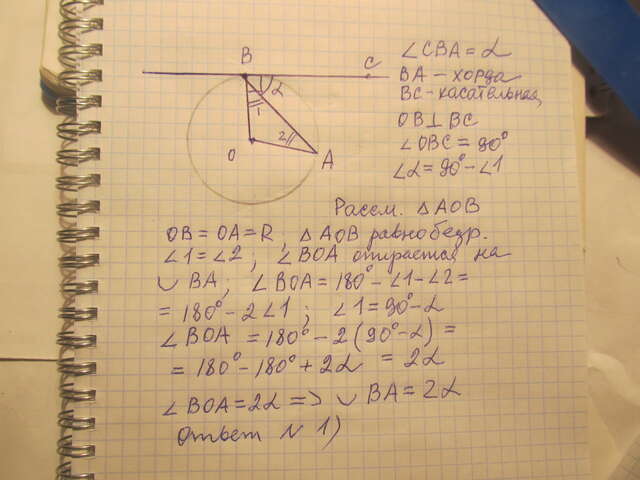 B
C
α
1
2
O
A
∠CBA = α
BA – хорда
BC - касательная
OB ⊥ BC
∠OBC = 90°
∠α = 90° - ∠1
Рассм. △AOB
OB = OA = R, △AOB равнобедр.
∠1 = ∠2, ∠BOA опирается на
◡ BA; ∠BOA = 180° - ∠1 - ∠2 =
= 180° - 2∠1; ∠1 = 90° - α
∠BOA = 180° - 2(90° - α) =
= 180° - 180° + 2α = 2α
∠BOA = 2α => ◡ BA = 2α
Ответ N 1)